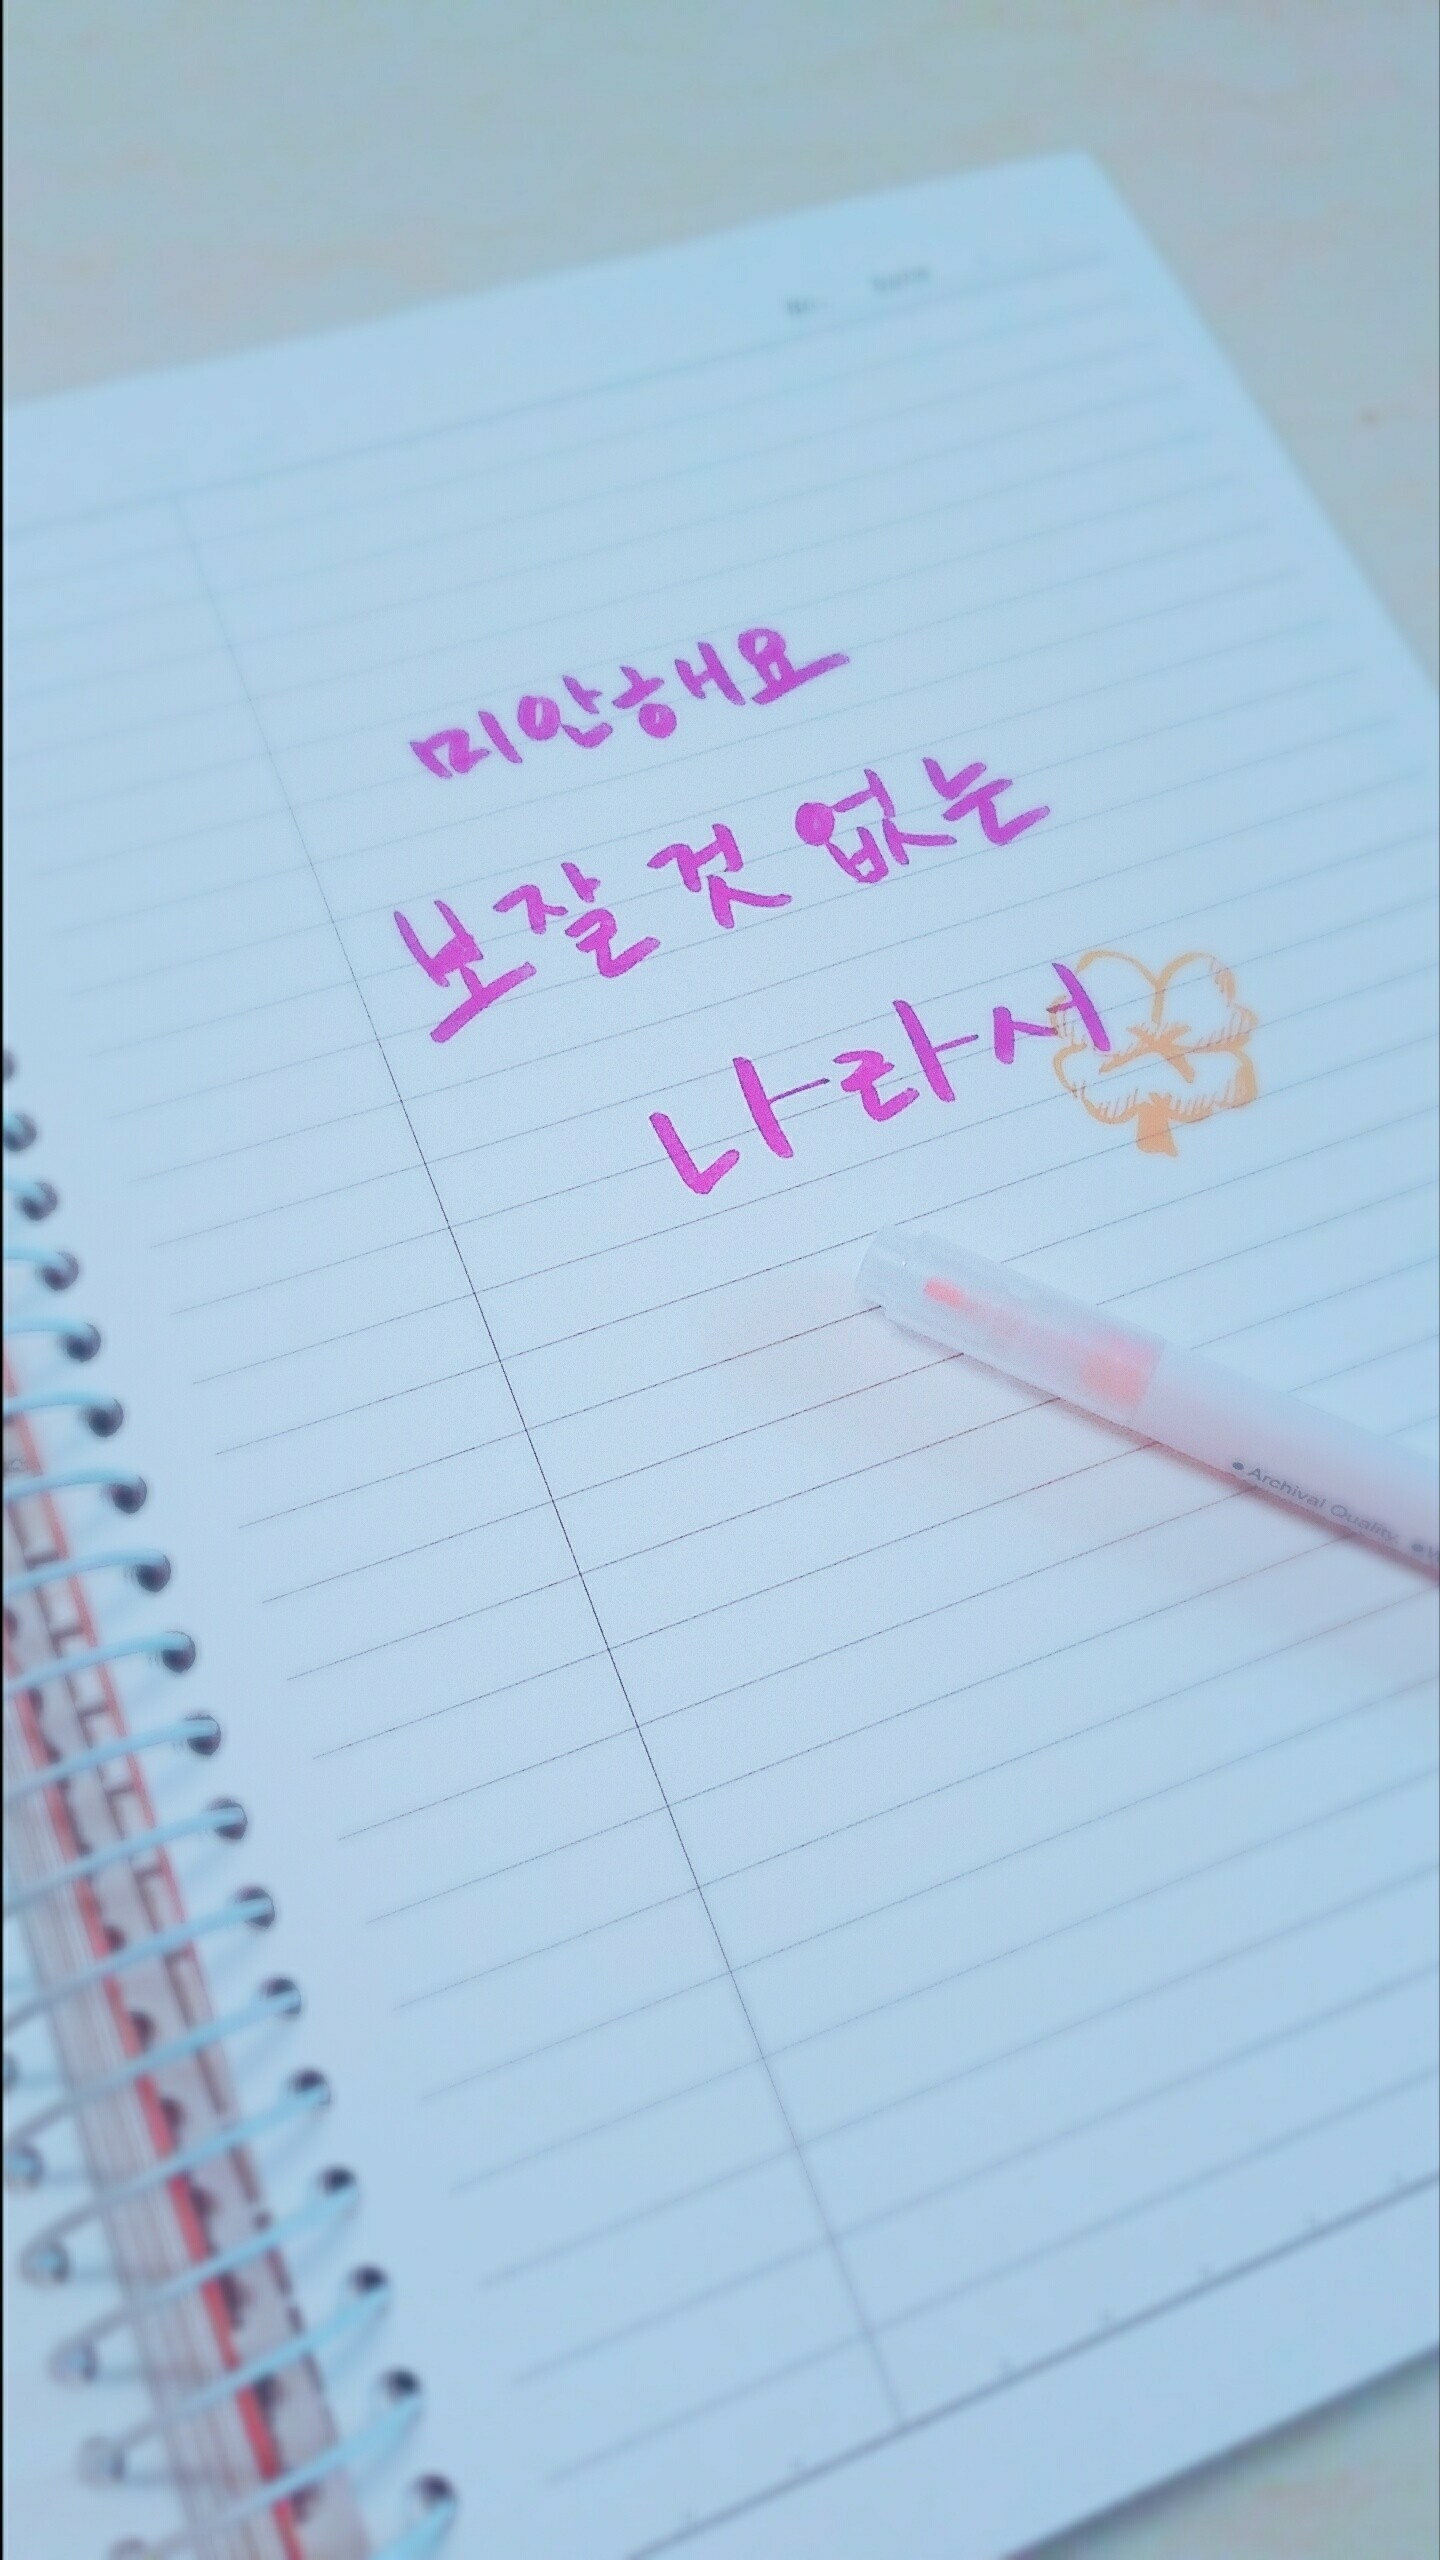 미안해요
보잘 것 없는
나라서
• Archival Quality